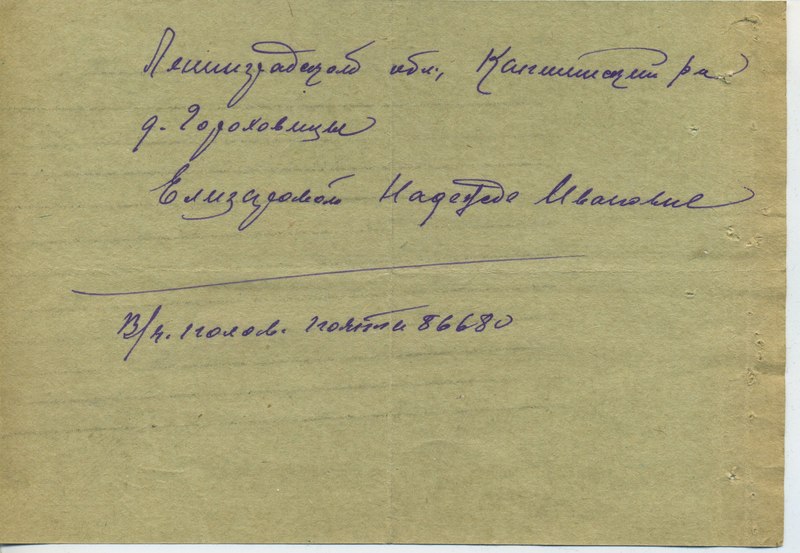 Ленинградской обл., Капшинский р-н
д. Гороховицы
Елизаровой Надежде Ивановне
В/ч. полев. почта 86680